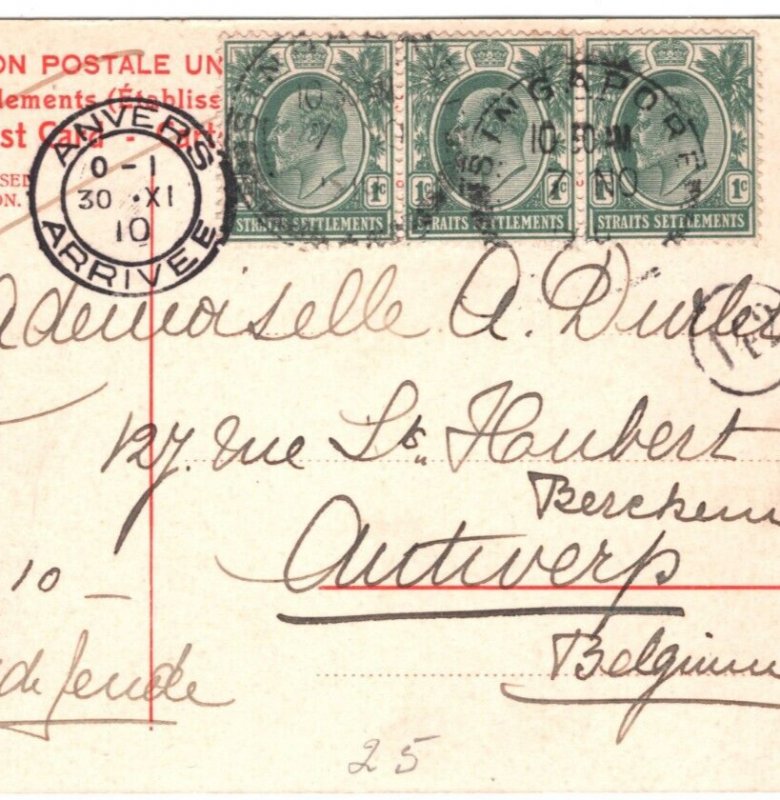 ON POSTALE UN
lements (Établiss
st Card - Cart
SED
ON.
ANVERS
0-1
30 XI
10
ARRIVEE
1c
STRAITS SETTLEMENTS
1c 1c
STRAITS SETTLEMENTS
1c
STRAITS SETTLEMENTS
SINGAPORE
10 30 AM
7 NO
ademoiselle A.
127. rue St. Hubert
Berchem
Antwerp
10 -
Belgium
25